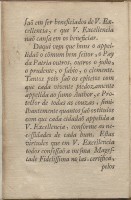 saõ em ser beneficiados de V. Ex-
cellencia, e que V. Excellencia
naõ cansa em os beneficiar.
Daqui vem que huns o appel-
lidaõ o commum bem feitor, o Pay
da Patria outros, outros o justo,
o prudente, o sabio, o clemente.
Tantos pois saõ os epitetos com
que cada vivente piedozamente
appellida ao summo Author, e Pro-
tector de todas as couzas,
quantos saõ estes
com que cada cidadaõ appellida a
V. Excellencia, conforme as ne-
cessidades de cada hum. Estas
virtudes que em V. Excellencia
todos confessaõ a nossa Mages-
tade Fidelissima as
pelos